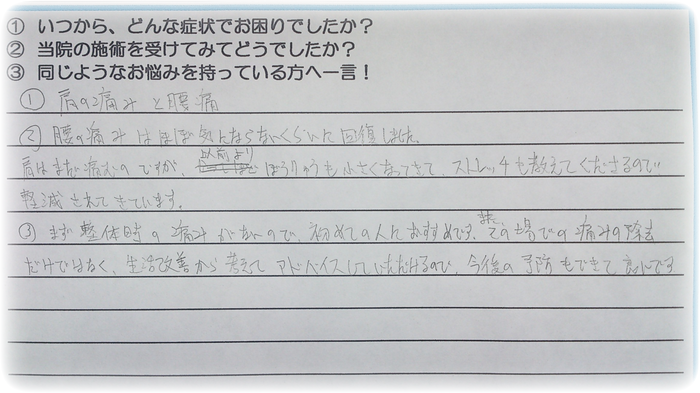 ① いつから、どんな症状でお困りでしたか？
② 当院の施術を受けてみてどうでしたか？
③ 同じようなお悩みを持っている方へ一言！
① 肩の痛みと腰痛
② 腰の痛みはほぼ気にならないくらいに回復しました。
肩はまだ痛むのですが、以前より も小さくなってきて、ストレッチも教えてくださるので
軽減されてきています。
③ まず整体時の痛みがないので、初めての人におすすめです。また その場での痛みの除去
だけではなく、生活改善から考えてアドバイスしていただけるので、今後の予防もできて良いです